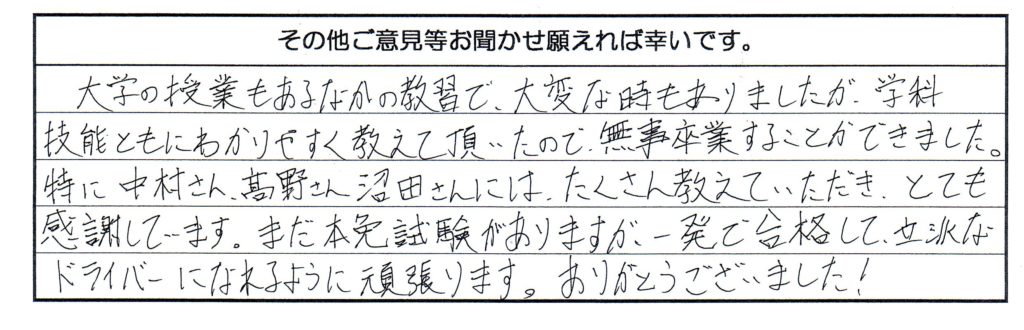 その他ご意見等お聞かせ願えれば幸いです。
大学の授業もあるなかの教習で、大変な時もありましたが、学科
技能ともにわかりやすく教えて頂いたので、無事卒業することができました。
特に中村さん、髙野さん沼田さんには、たくさん教えていただき、とても
感謝しています。まだ本免試験がありますが、一発で合格して、立派な
ドライバーになれるように頑張ります。ありがとうございました!